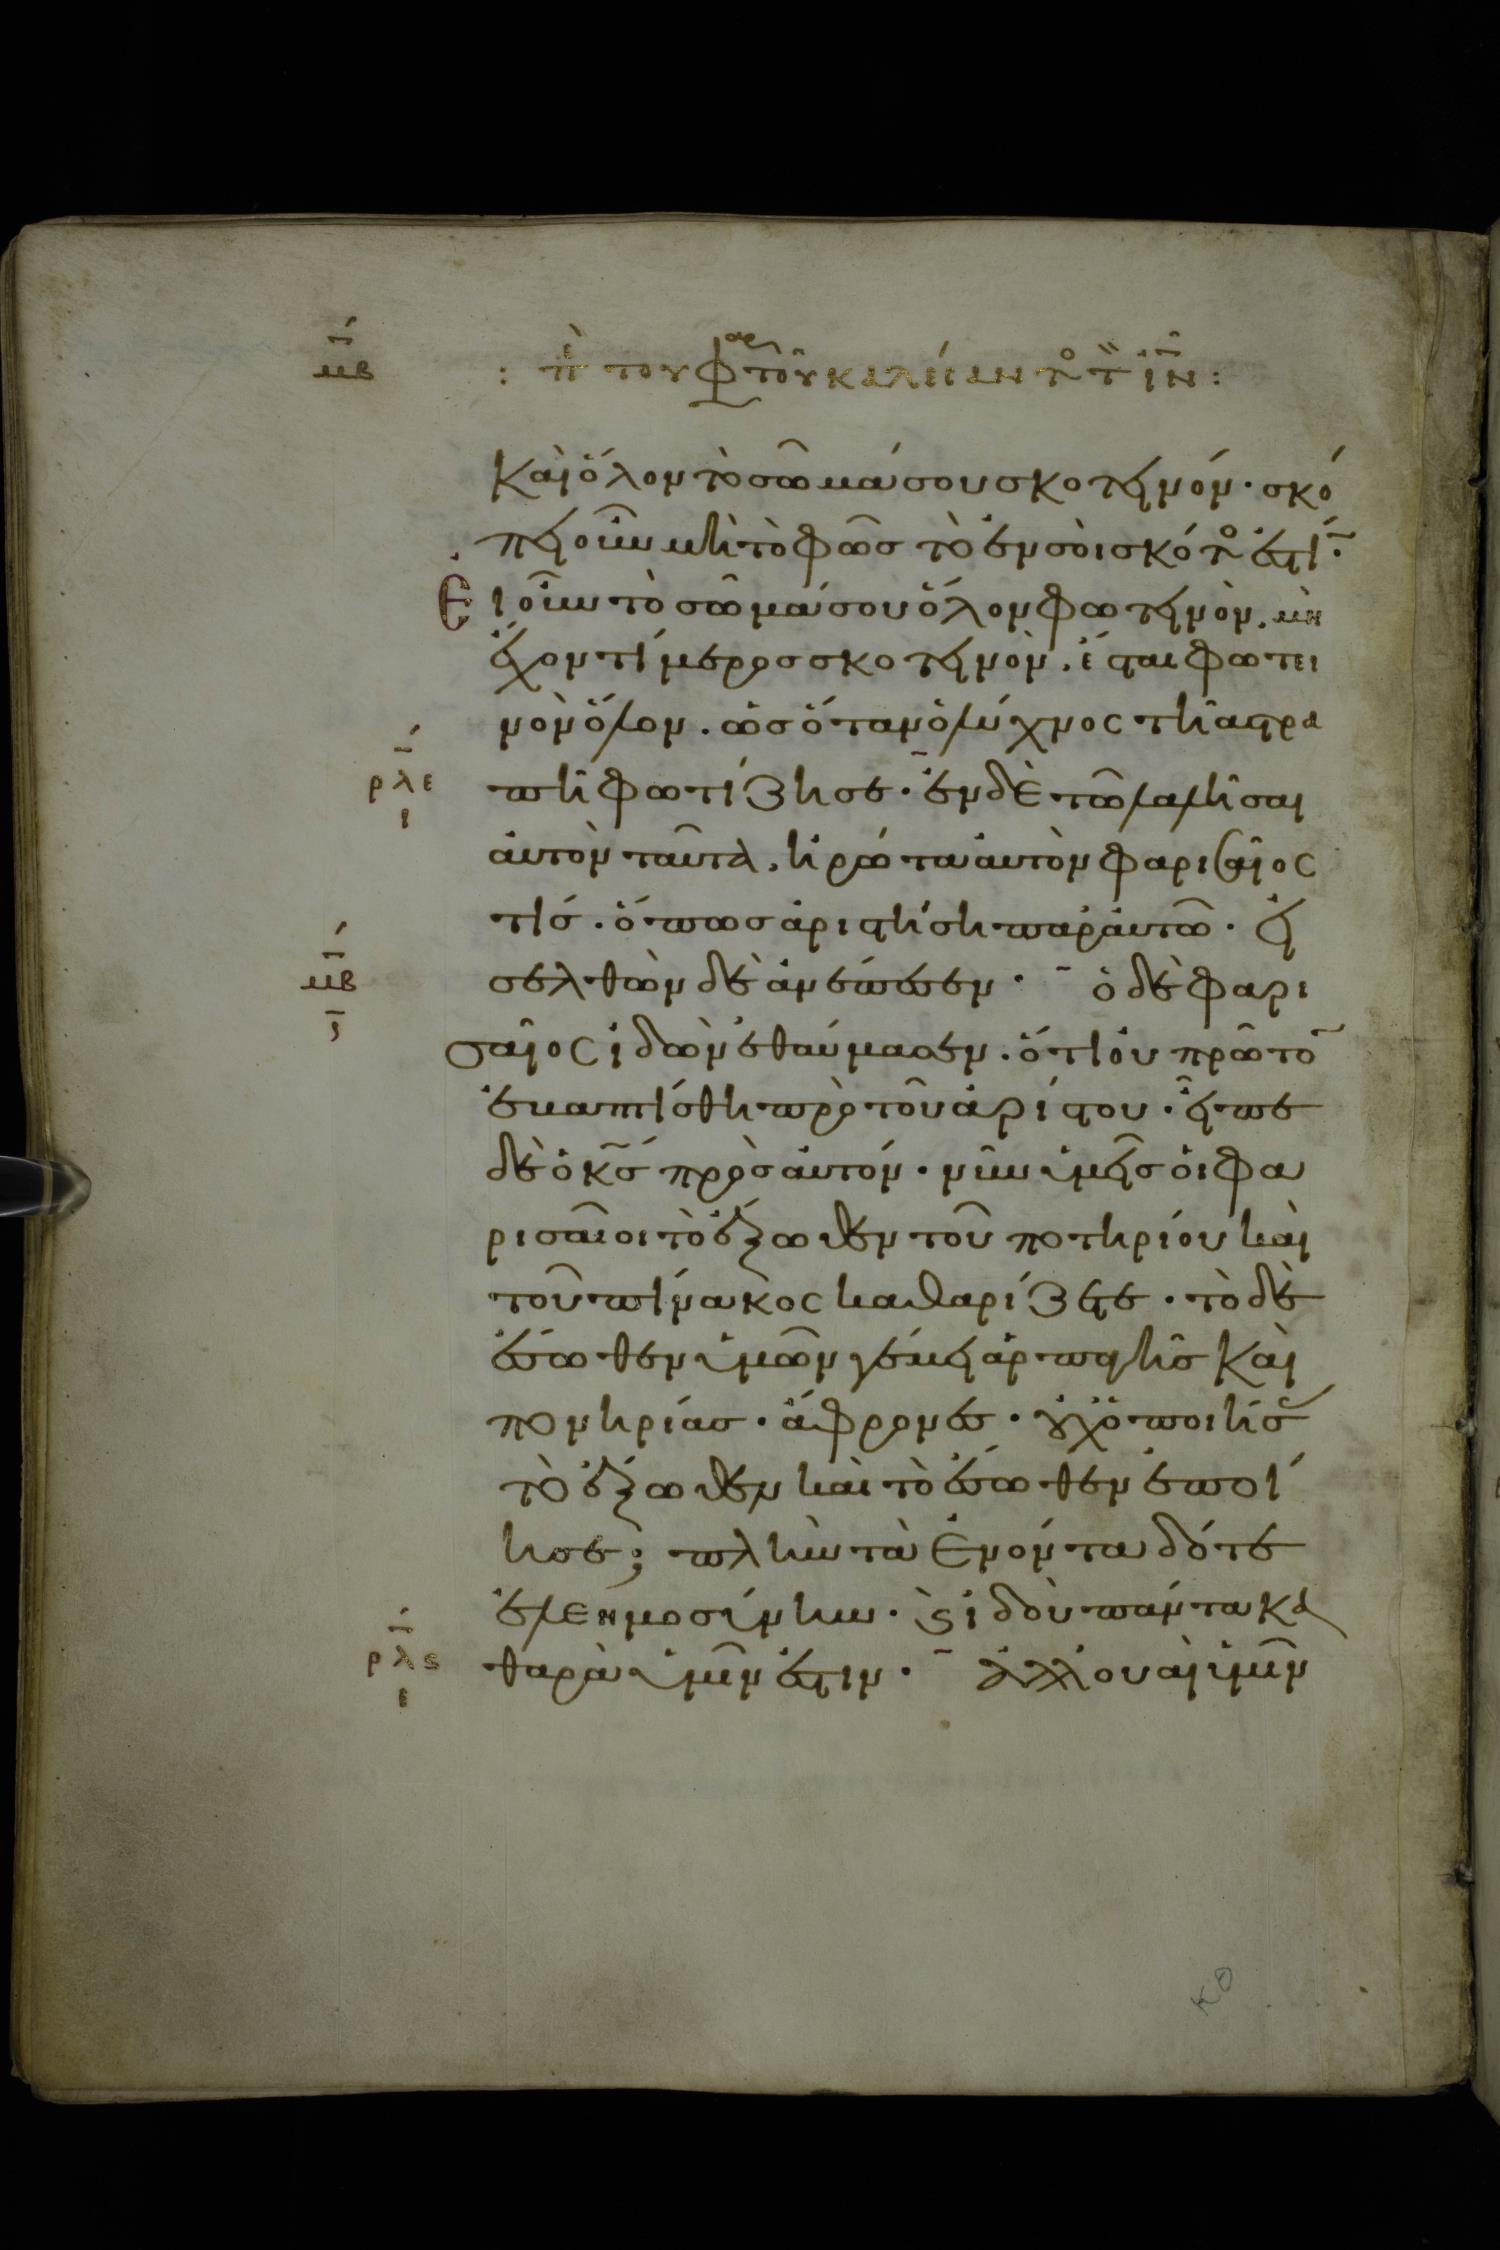 μβ
: πε του Φαρ του καλέσαντος τ ιν :
Και ὅλον τὸ σῶμά σου σκοτεινόν · σκό
πει οὖν μὴ τὸ φῶς τὸ ἐν σοὶ σκότος ἐστί ·
Εἰ οὖν τὸ σῶμά σου ὅλον φωτεινὸν . μὴ
ἔχον τί μέρος σκοτεινὸν . ἔσται φωτει
νὸν ὅλον . ὡς ὅταν ὁ λύχνος τῆ ἀστρα
ρλε
ι
πῆ φωτίζη σε · ἐν δὲ τῶ λαλῆσαι
αὐτὸν ταῦτα . ἠρώτα αὐτὸν φαρισαῖος
τίς . ὅπως ἀριστήση παρ αὐτῶ · εἰ
μβ
ς
σελθὼν δὲ ἀνέπεσεν · ὁ δὲ φαρι
σαῖος ἰδὼν ἐθαύμασεν . ὅτι οὐ πρῶτο
ἐβαπτίσθη πρὸ τοῦ ἀρίστου · εἶπε
δὲ ὁ κς πρὸς αὐτόν · νῦν ὑμεῖς οἱ φα
ρισαῖοι τὸ ἔξωθεν τοῦ ποτηρίου καὶ
τοῦ πίνακος καθαρίζετε · τὸ δὲ
ἔσωθεν ὑμῶν γέμει ἁρπαγῆς Καὶ
πονηρίας · ἄφρονες · οὐχ ὁ ποιήσας
τὸ ἔξωθεν καὶ τὸ ἔσωθεν ἐποί
ησε; πλὴν τὰ ἐνόντα δότε
ἐλεημοσύνην · ϗ ἰδοὺ πάντα κα
ρλς
ε
θαρὰ ὑμῖν ἐστιν · ἀλλ οὐαὶ ὑμῖν
κθ